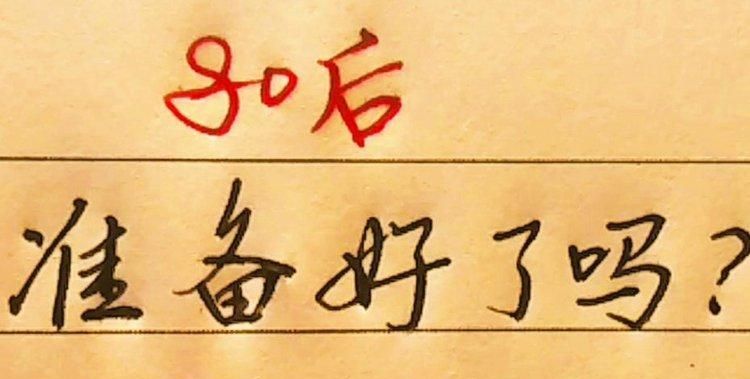 90后
准备好了吗?